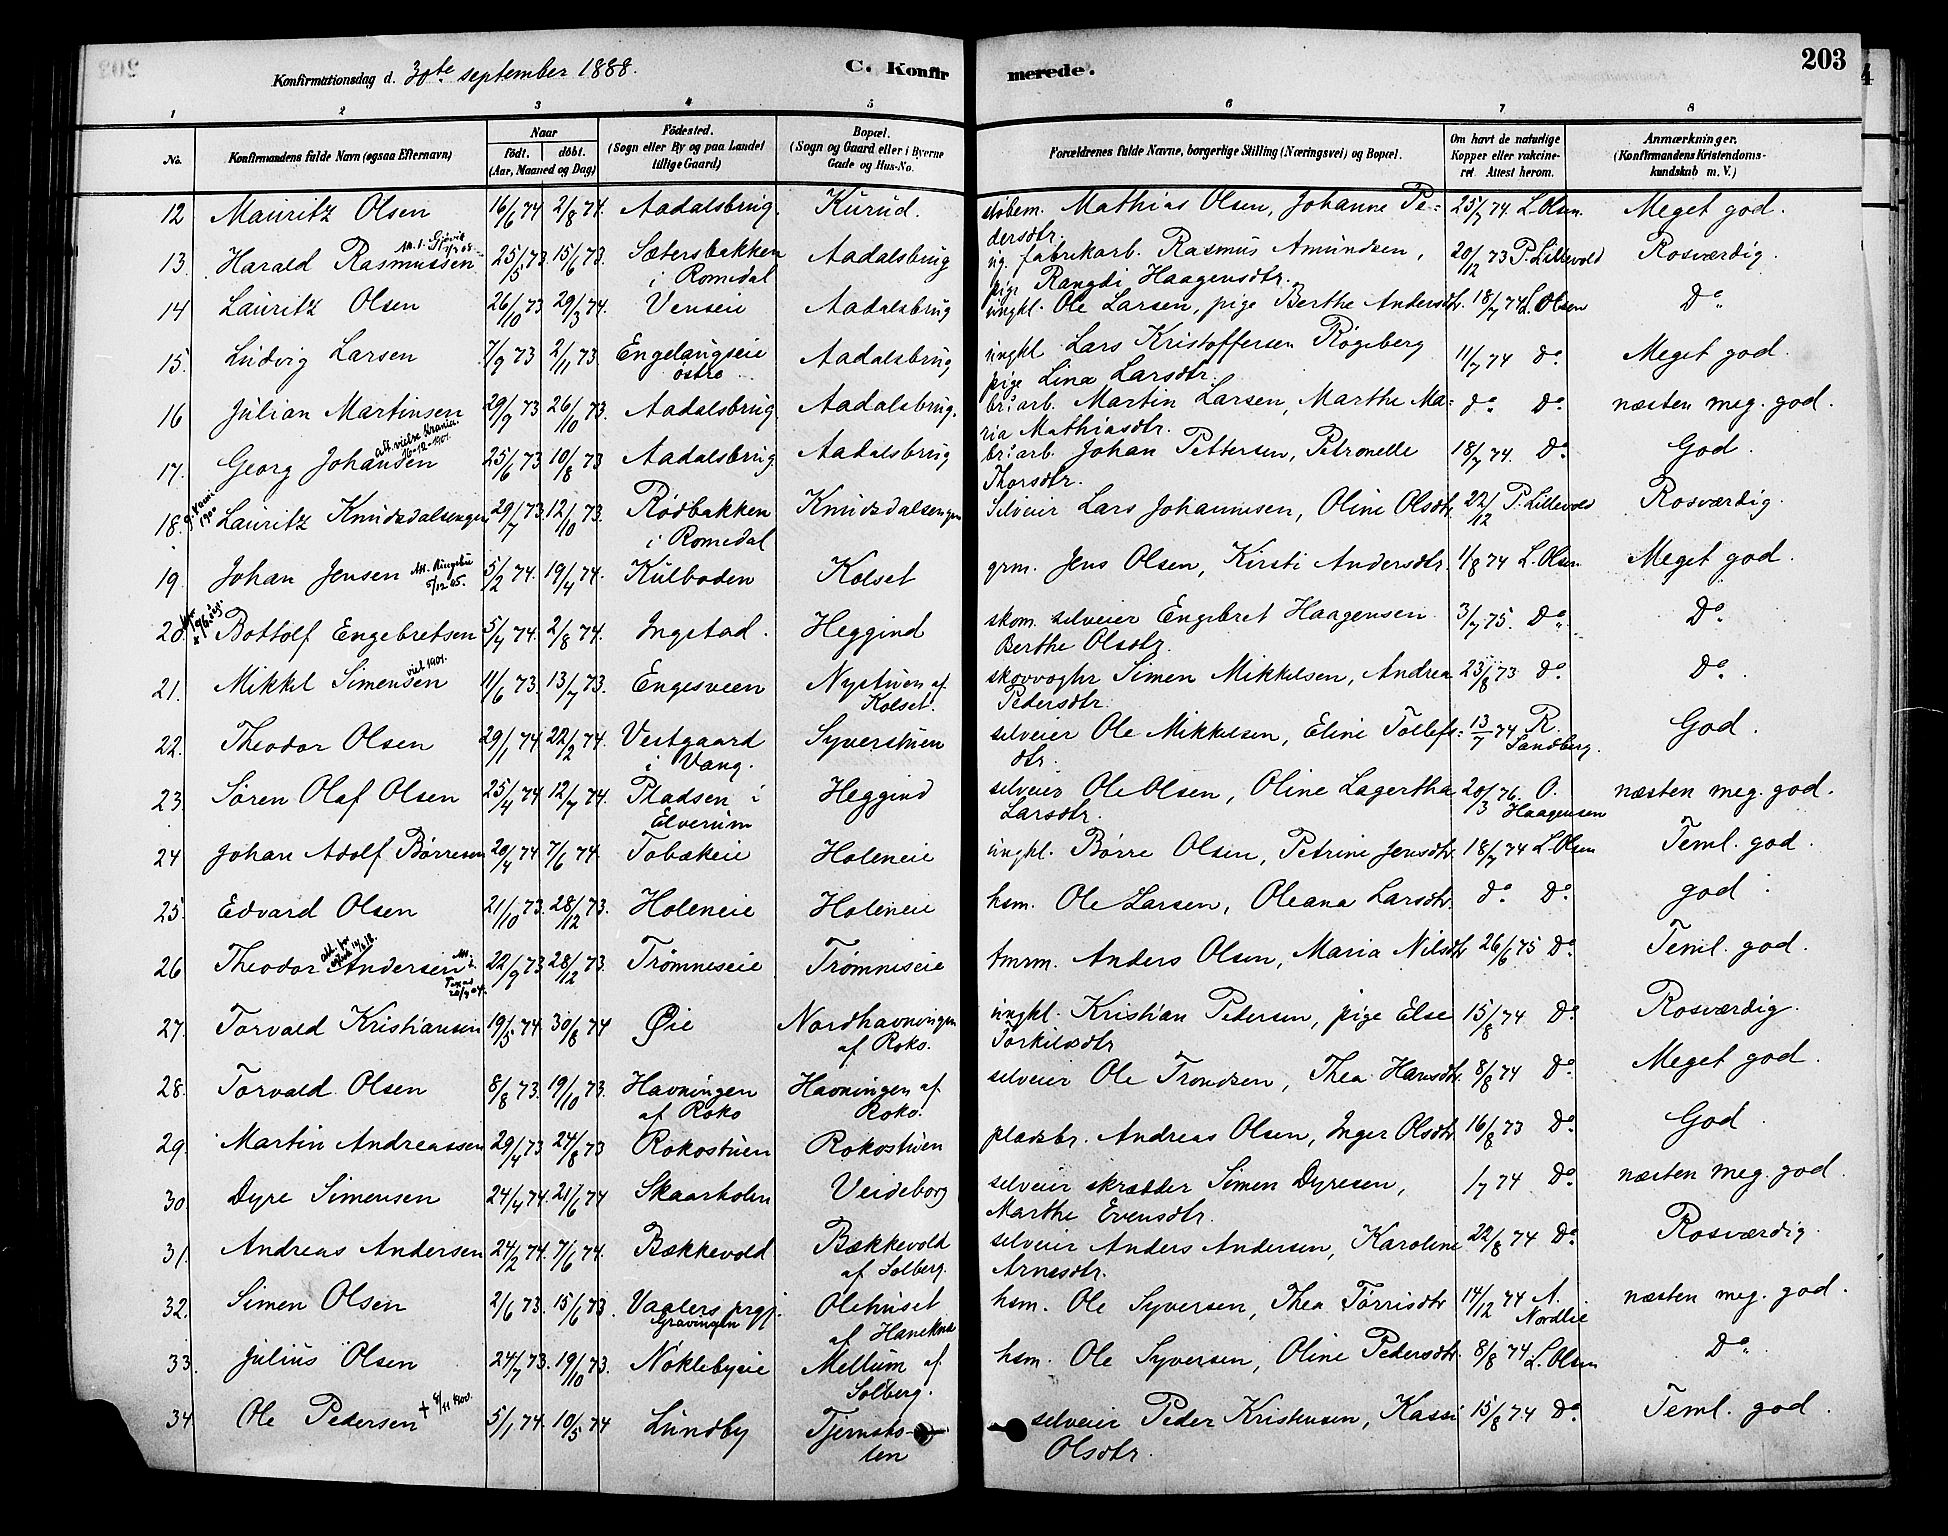 203
Konfirmationsdag d. 30te september 1888. C. Konfir merede.
1 2 3 4 5 6 7 8
No. Konfirmandens fulde Navn (ogsaa Efternavn) Naar födt. döbt. (Aar, Maaned og Dag) Födested. (Sogn eller By og paa Landet tillige Gaard) Bopæl. (Sogn og Gaard eller i Byerne Gade og Hus-No. Forældrenes fulde Navne, borgerlige Stilling (Næringsvei) og Bopæl. Om havt de naturlige Kopper eller vakcineret. Attest herom. Anmærkninger. (Konfirmandens Kristendomskundskab m. V.)
12 Mauritz Olsen 16/6 74 2/8 74. Aadalsbrug. Kurud. støbem. Mathias Olsen, Johanne Pe= 25/7 74. L. Olsen Meget god.
dersdtr.
13. Harald Rasmussen 25/5 73. 15/6 73. Sætersbakken Aadalsbrug ug. fabrikarb. Rasmus Amundsen, 20/12 73 P. Lillevold Rosværdig.
i Romedal pige Rangdi Haagensdtr.
14 Lauritz Olsen 26/10 73 29/3 74. Venseie Aadalsbrug ungkl. Ole Larsen, pige Berthe Andersdtr. 18/7 74 L. Olsen Do
15. Ludvig Larsen 7/9 73 2/11 73 Engelaugseie Aadalsbrug ungkl Lars Kristoffersen Rogeberg 11/7 74 do. Meget god.
østre pige Lina Larsdtr.
16 Julian Martinsen 29/9 73 26/10 73. Aadalsbrug. Aadalsbrug. br: arb. Martin Larsen, Marthe Ma= do Do. næsten meg. god.
att. vielse Krania. 16-12-1901. ria Mathiasdtr.
17. Georg Johansen 25/6 73 10/8 73 Aadalsbrug. Aadalsbrug br: arb. Johan Pettersen, Petronelle 18/7 74. Do God.
Thorsdtr.
18. Lauritz Knudsdalsengen 29/7 73. 12/10 73. Rødbakken Knudsdalsengen Selveier Lars Johannesen, Oline Olsdtr. 22/12 P. Lillevold Rosværdig
i Romedal
19. Johan Jensen Att. Ringebu 5/12 05. 5/2 74. 19/4 74. Kulboden Kolset grm. Jens Olsen, Kirsti Andersdtr. 1/8 74 L. Olsen Meget god.
20. Bottolf Engebretsen 5/4 74. 2/8 74. Ingstad. Heggind skom. selveier Engebret Haagensen 3/7 75. Do. Do
Berthe Olsdtr.
21. Mikkel Simensen viet 1901. 11/6 73. 13/7 73. Engesveen Nystuen af skovvogtr Simen Mikkelsen, Andrea 23/8 73 do. Do.
Kolset. Pedersdtr.
22. Theodor Olsen 29/1 74 22/2 74. Vestgaard Syverstuen selveier Ole Mikkelsen, Eline Tollefs= 13/7 74 R. Sandberg. God.
i Vang. dtr.
23. Søren Olaf Olsen 25/4 74 12/7 74. Pladsen i Heggind selveier Ole Olsen, Oline Lagertha 20/3 76. O. Haagensen næsten meg. god.
Elverum Larsdtr.
24 Johan Adolf Børresen 20/4 74 7/6 74. Tobækeie Holeneie ungkl. Børre Olsen, Petrine Jensdtr. 18/7 74 L. Olsen Teml. god.
25. Edvard Olsen 21/10 73. 28/12 73. Holeneie Holeneie hsm. Ole Larsen, Oleana Larsdtr. do. Do. god.
26 Theodor Andersen Texas 22/9 73 28/12 73. Trømneseie Trømneseie tmrm. Anders Olsen, Maria Nilsdtr 26/6 75 Do Teml. god.
27. Torvald Kristiansen 19/5 74 30/8 74 Øie Nordhavningen ungkl. Kristian Pedersen, pige Else 15/8 74 Do. Rosværdig.
af Roko. Torkilsdtr
28. Torvald Olsen 8/8 73. 19/10 73. Havningen Havningen af selveier Ole Trondsen, Thea Hansdtr. 8/8 74 Do. Meget god.
af Roko Roko.
29. Martin Andreassen 29/4 73 24/8 73 Rokostuen Rokostuen pladsbr. Andreas Olsen, Inger Olsdtr 16/8 73 Do. God
30. Dyre Simensen 24/4 74. 21/6 74 Skaarholen Veideborg selveier skrædder Simen Dyresen, 1/7 74 Do. næsten meg. god.
Marthe Evensdtr.
31. Andreas Andersen 24/2 74. 7/6 74. Bækkevold Bækkevold selveier Anders Andersen, Karoline 22/8 74 Do. Rosværdig
af Solberg. Arnesdtr.
32. Simen Olsen 2/6 73. 15/6 73. Vaalers prgj. Olehuset hsm. Ole Syversen, Thea Tørrisdtr 14/12 74 A. Nordlie næsten meg. god.
Gravingen af Hanekne
33. Julius Olsen 24/7 73. 19/10 73. Nøklebyeie Mellum af hsm. Ole Syversen, Oline Pedersdtr. 8/8 74. L. Olsen Do.
Solberg.
34 Ole Pedersen + 4/11 1900. 5/1 74. 10/5 74 Lundby Tjernsho- selveier Peder Kristensen, Kassi 15/8 74 Do. Teml. god.
ten Olsdtr.